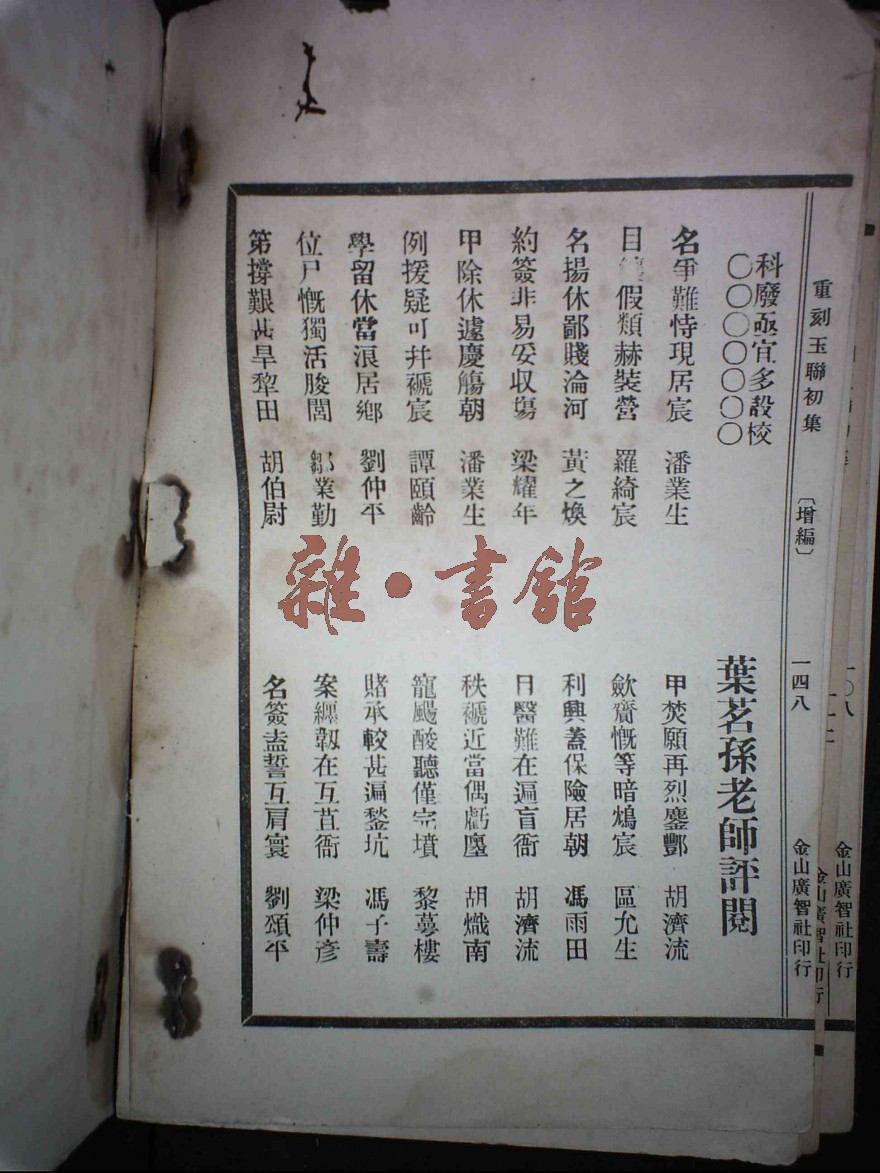 重刻玉聯初集 〔增編〕 一四八 金山廣智社印行
科廢亟宜多設校
〇〇〇〇〇〇〇
葉茗孫老師評閱
名爭難恃現居宸 潘業生
目 假類赫裝營 羅綺宸
名揚休鄙賤淪河 黃之煥
約簽非易妥収塲 梁耀年
甲除休遽慶觴朝 潘業生
例援疑可幷褫宸 譚頤齡
學留休當浪居鄉 劉仲平
位尸慨獨活朘閭 鄒業勤
第撐艱甚旱犂田 胡伯尉
甲焚願再烈鏖酆 胡濟流
歛齎慨等暗鴆宸 區允生
利興蓋保險居朝 馮雨田
目醫難在遍盲衙 胡濟流
秩褫近當偶虧廛 胡熾南
寵颺酸聽僅完墳 黎蕚樓
賭承較甚漏鍫坑 馮子壽
案纒韌在互苴衙 梁仲彥
名簽盍誓互肩寰 劉頌平
雜·書館
金山廣智社印行